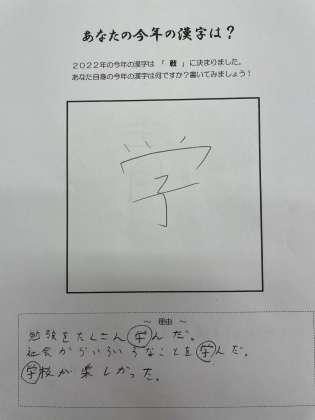 あなたの今年の漢字は？
２０２２年の今年の漢字は 「 戦 」 に決まりました。
あなた自身の今年の漢字は何ですか？書いてみましょう！
学
～ 理由 ～
勉強をたくさん学んだ。
社会からいろいろなことを学んだ。
学校が楽しかった。